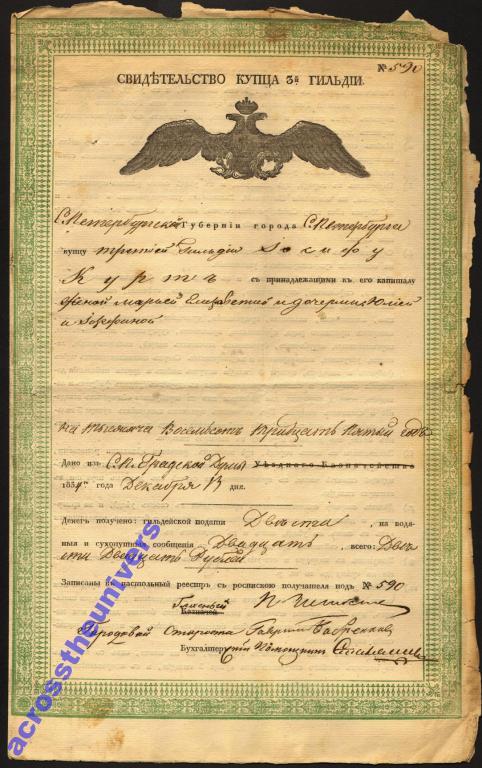 № 590
СВИДѢТЕЛЬСТВО КУПЦА 3й ГИЛЬДІИ.
С.Петербургской Губерніи города С.Петербурга
купцу третьей Гильдіи Іосифу
Куртъ съ принадлежащими къ его капиталу
женой Марьей Елизаветой и дочерьми Юліей
и Жозефиной
на тысяча восемьсотъ тридцать пятый годъ
Дано изъ С.П. Градской Думы Уѣзднаго Казначейства
1834 года Декабря 13 дня.
Денегъ получено: гильдейской подати Двѣсти, на водя-
ныя и сухопутныя сообщенія Двадцать, всего: Двѣ
сти Двадцать Рублей
Записаны въ настольный реестръ съ роспискою получателя подъ № 590
Гласный
Казначей
Городовой Староста Гаврила
Бухгалтерскій Помощникъ
acrosstheunivers